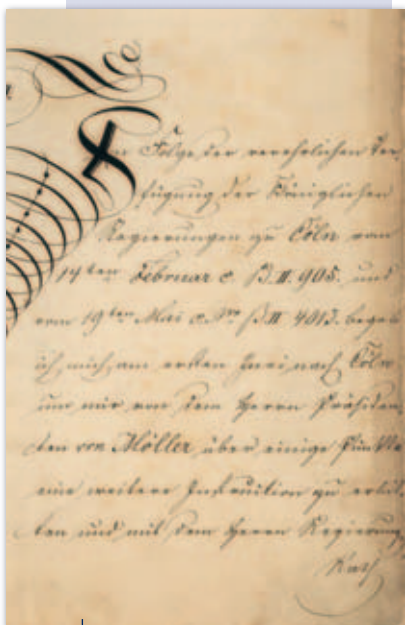 In Folge der verehrlichen Ver-
fügung der Königlichen
Regierungen zu Cöln vom
14ten Februar c. B. II. 905. und
vom 19ten Mai c. B. II 4013. begab
ich mich am ersten Juni nach Cöln
um mir von dem Herrn Präsiden-
ten von Möller über einige Punkte
eine weitere Instruction zu erbit-
ten und mit dem Herrn Regierung
Rath